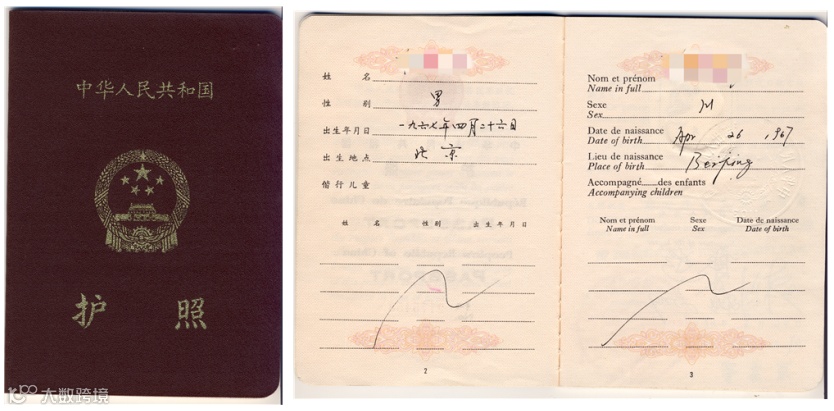 中华人民共和国
护 照
大数跨境
姓 名
性 别 男
出生年月日 一九六七年四月二十六日
出生地点 北京
偕行儿童
姓 名 性 别 出 生 年 月 日
2
Nom et prénom
Name in full
Sexe M
Sex
Date de naissance Apr 26, 1967
Date of birth
Lieu de naissance Beijing
Place of birth
Accompagné......des enfants
Accompanying children
Nom et prénom Sexe Date de naissance
Name in full Sex Date of birth
3